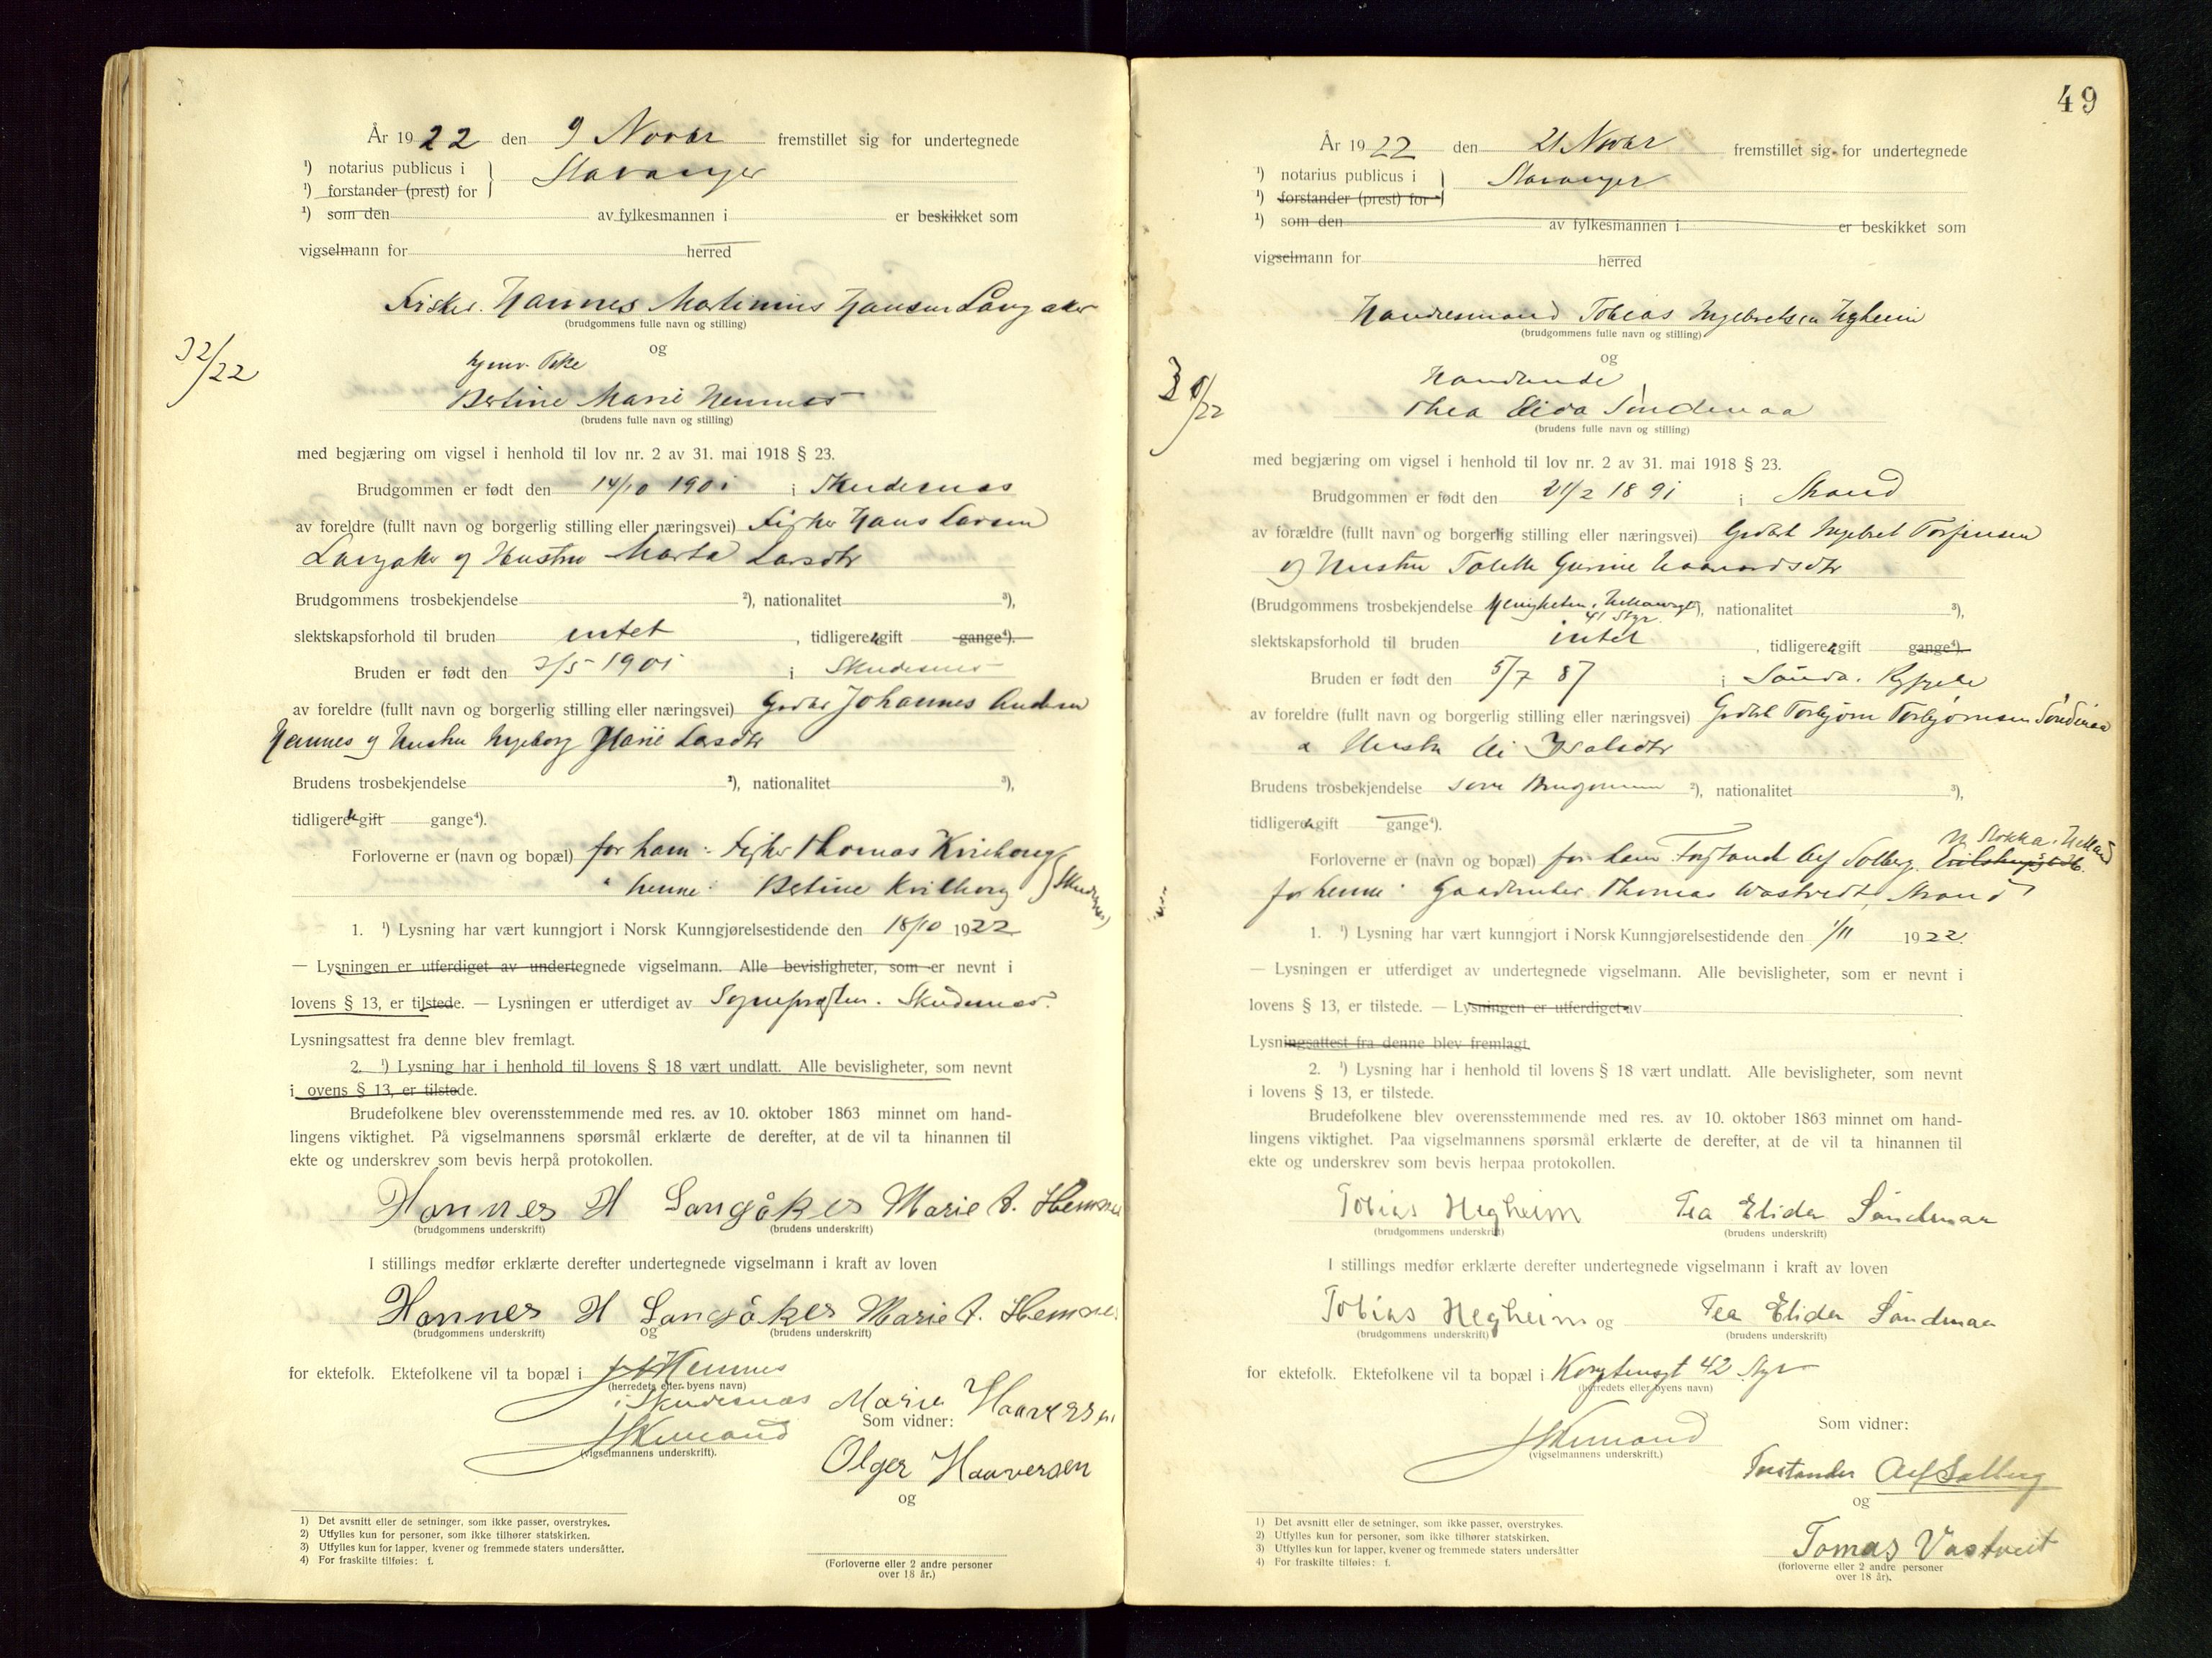 År 1922 den 9 Novbr fremstillet sig for undertegnede
¹) notarius publicus i
¹) forstander (prest) for } Stavanger
¹) som den av fylkesmannen i er beskikket som
vigselmann for herred
Fisker. Hannes Martinius Hansen Langaker
(brudgommens fulle navn og stilling)
og
32/22
hjemv. Pike
Bertine Marie Hemnes
(brudens fulle navn og stilling)
med begjæring om vigsel i henhold til lov nr. 2 av 31. mai 1918 § 23.
Brudgommen er født den 14/10 1901 i Skudesnes
av foreldre (fullt navn og borgerlig stilling eller næringsvei) Fisker Hans Larsen
Langaker og Hustru Marta Larsdtr
Brudgommens trosbekjendelse ²), nationalitet ³),
slektskapsforhold til bruden intet , tidligere gift gange⁴).
Bruden er født den 3/5 1901 i Skudesnes
av foreldre (fullt navn og borgerlig stilling eller næringsvei) Gdbr Johannes Andersen
Hemnes og Hustru Ingeborg Marie Larsdtr
Brudens trosbekjendelse ²), nationalitet ³),
tidligere gift gange⁴).
Forloverne er (navn og bopæl) for ham: Fisker Thomas Kvilhaug
" henne: Bertine Kvilhaug } Skudesnes
1. ¹) Lysning har vært kunngjort i Norsk Kunngjørelsestidende den 18/10 1922
— Lysningen er utferdiget av undertegnede vigselmann. Alle bevisligheter, som er nevnt i
lovens § 13, er tilstede. — Lysningen er utferdiget av Sognepresten. Skudesnes.
Lysningsattest fra denne blev fremlagt.
2. ¹) Lysning har i henhold til lovens § 18 vært undlatt. Alle bevisligheter, som nevnt
i ovens § 13, er tilstede.
Brudefolkene blev overensstemmende med res. av 10. oktober 1863 minnet om hand-
lingens viktighet. På vigselmannens spørsmål erklærte de derefter, at de vil ta hinannen til
ekte og underskrev som bevis herpå protokollen.
Hannes H Langåker Marie A. Hemnes
(brudgommens underskrift) (brudens underskrift)
I stillings medfør erklærte derefter undertegnede vigselmann i kraft av loven
Hannes H Langåker Marie A. Hemnes
(brudgommens underskrift) og (brudens underskrift)
for ektefolk. Ektefolkene vil ta bopæl i Hemnes
(herredets eller byens navn)
i Skudesnes Marie Haaversen
Som vidner:
(vigselmannens underskrift).
Olger Haaversen
og
1) Det avsnitt eller de setninger, som ikke passer, overstrykes.
2) Utfylles kun for personer, som ikke tilhører statskirken.
3) Utfylles kun for lapper, kvener og fremmede staters undersåtter.
4) For fraskilte tilføies: f.
(Forloverne eller 2 andre personer
over 18 år.)
49
År 1922 den 21 Novbr fremstillet sig for undertegnede
¹) notarius publicus i
¹) forstander (prest) for } Stavanger
¹) som den av fylkesmannen i er beskikket som
vigselmann for herred
Handelsmand Tobias Ingebretsen Hegheim
(brudgommens fulle navn og stilling)
og
Handlende
Thea Elida Søndenaa
(brudens fulle navn og stilling)
med begjæring om vigsel i henhold til lov nr. 2 av 31. mai 1918 § 23.
Brudgommen er født den 21/2 1891 i Strand
av forældre (fullt navn og borgerlig stilling eller næringsvei) Gdbr Ingebret Torjussen
og Hustru Tolette Gurine
(Brudgommens trosbekjendelse ²), nationalitet ³),
slektskapsforhold til bruden intet , tidligere gift gange⁴).
Bruden er født den 5/7 87 i
av foreldre (fullt navn og borgerlig stilling eller næringsvei) Gdbr Torbjørn Torbjørnsen Søndenaa
& Hustru
Brudens trosbekjendelse som Brudgommen ²), nationalitet ³),
tidligere gift gange⁴).
Forloverne er (navn og bopæl) for ham Forstand. Alf Solberg.
for henne: Gaardbruker Thomas Vastvedt, Strand
1. ¹) Lysning har vært kunngjort i Norsk Kunngjørelsestidende den 1/11 1922.
— Lysningen er utferdiget av undertegnede vigselmann. Alle bevisligheter, som er nevnt i
lovens § 13, er tilstede. — Lysningen er utferdiget av
Lysningsattest fra denne blev fremlagt.
2. ¹) Lysning har i henhold til lovens § 18 vært undlatt. Alle bevisligheter, som nevnt
i lovens § 13, er tilstede.
Brudefolkene blev overensstemmende med res. av 10. oktober 1863 minnet om hand-
lingens viktighet. Paa vigselmannens spørsmål erklærte de derefter, at de vil ta hinannen til
ekte og underskrev som bevis herpaa protokollen.
Tobias Hegheim Tea Elida Søndenaa
(brudgommens underskrift) (brudens underskrift)
I stillings medfør erklærte derefter undertegnede vigselmann i kraft av loven
Tobias Hegheim og Tea Elida Søndenaa
(brudgommens underskrift) (brudens underskrift)
for ektefolk. Ektefolkene vil ta bopæl i 42
(herredets eller byens navn)
Som vidner:
(vigselmannens underskrift.)
Forstander Alf Solberg
og
Tomas Vastveit
(forloverne eller 2 andre personer
over 18 år).
1) Det avsnitt eller de setninger, som ikke passer, overstrykes.
2) Utfylles kun for personer, som ikke tilhører statskirken.
3) Utfylles kun for lapper, kvener og fremmede staters undersåtter
4) For fraskilte tilføies: f.